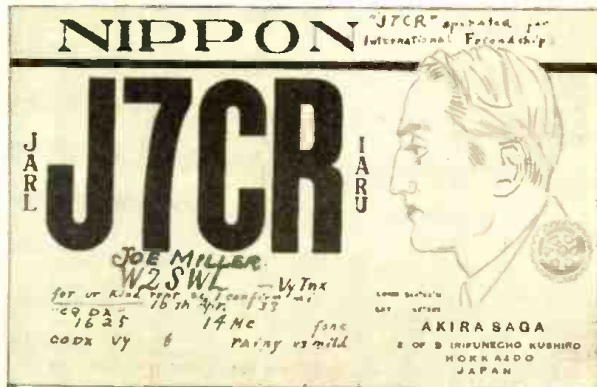 NIPPON
"J7CR" operated for
International Friendship
J7CR
JARL
IARU
JOE MILLER
W2SWL Vy Tnx
for ur kind rept es I confirm mi
"CQ DX" 16th Apr.
1625 14 MC fone
CODX Vy 6 rainy es mild
AKIRA SAGA
2 OF 5 IRIFUNECHO KUSHIRO
HOKKAIDO
JAPAN